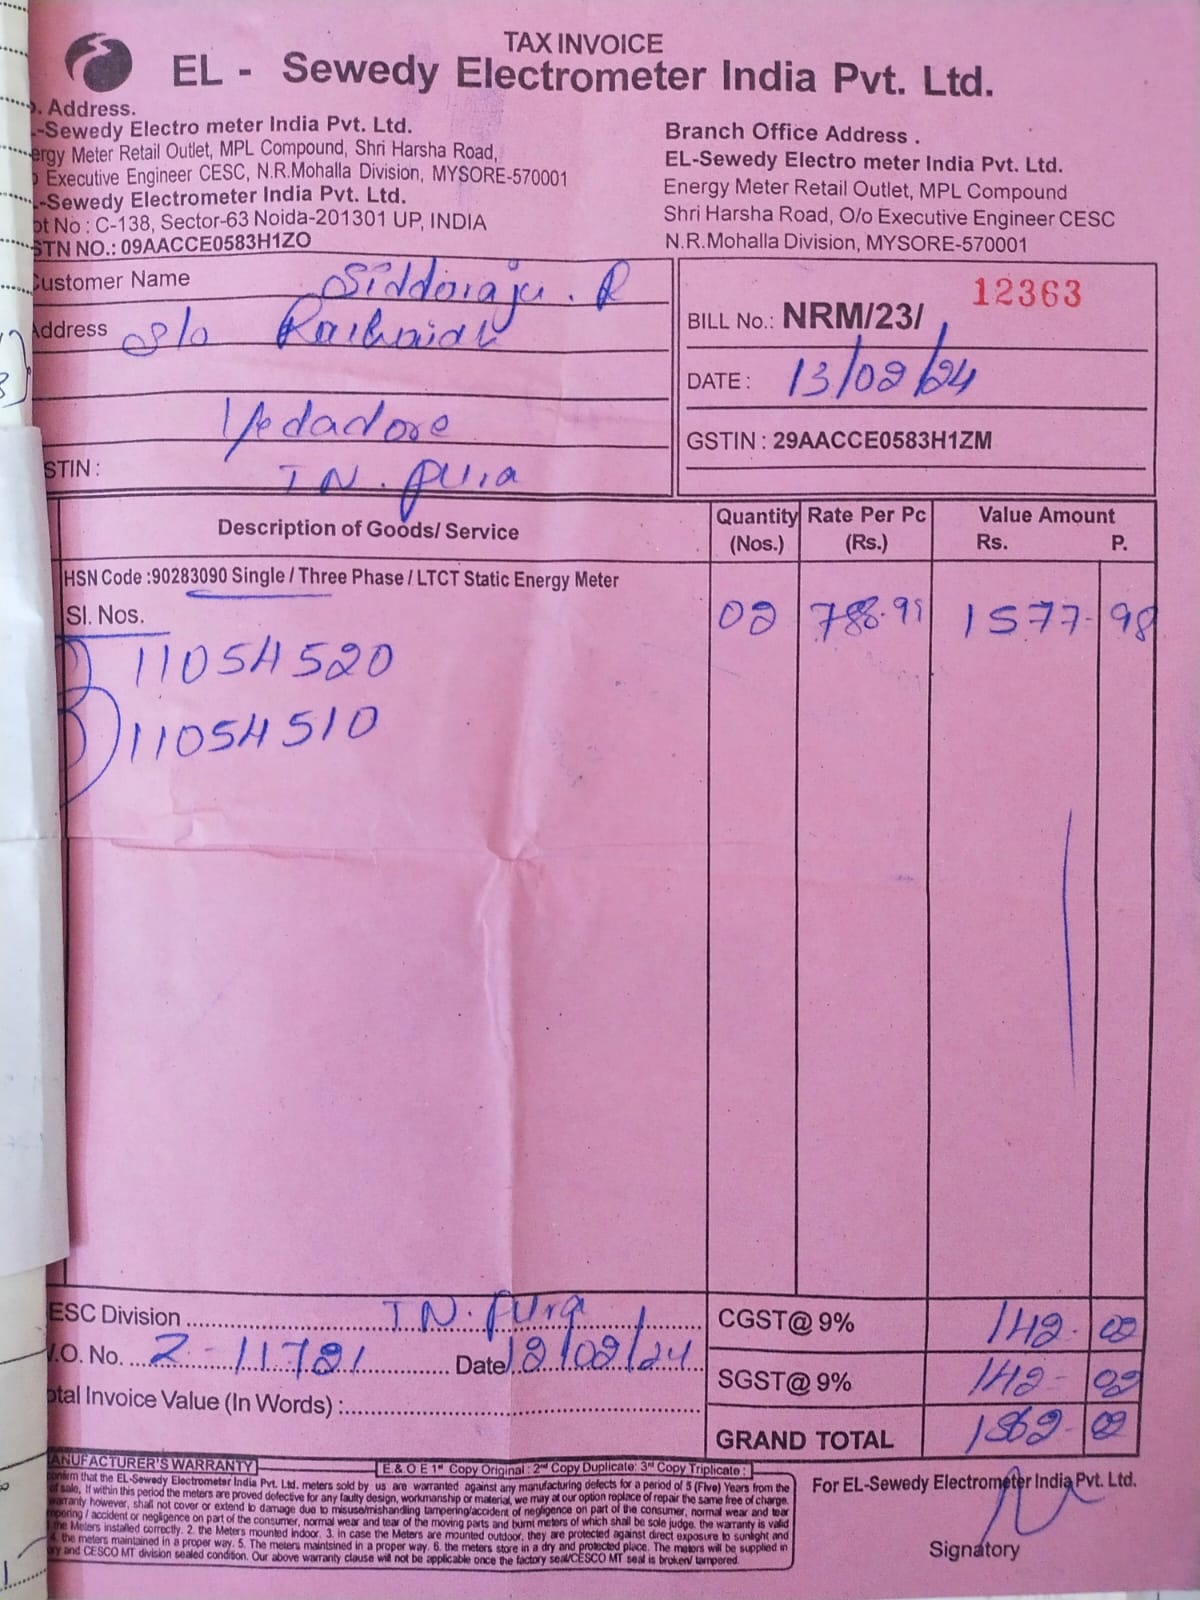 TAX INVOICE
EL - Sewedy Electrometer India Pvt. Ltd.
. Address.
-Sewedy Electro meter India Pvt. Ltd.
ergy Meter Retail Outlet, MPL Compound, Shri Harsha Road,
Executive Engineer CESC, N.R.Mohalla Division, MYSORE-570001
-Sewedy Electrometer India Pvt. Ltd.
ot No : C-138, Sector-63 Noida-201301 UP, INDIA
STN NO.: 09AACCE0583H1ZO
Branch Office Address .
EL-Sewedy Electro meter India Pvt. Ltd.
Energy Meter Retail Outlet, MPL Compound
Shri Harsha Road, O/o Executive Engineer CESC
N.R.Mohalla Division, MYSORE-570001
Customer Name Siddaraju. R
Address S/o
Yedadore
STIN : T N. Pura
BILL No.: NRM/23/ 12363
DATE : 13/02/24
GSTIN : 29AACCE0583H1ZM
Description of Goods/ Service Quantity (Nos.) Rate Per Pc (Rs.) Value Amount Rs. P.
HSN Code :90283090 Single / Three Phase / LTCT Static Energy Meter
Sl. Nos. 02 788.99 1577- 98
1) 11054520
2) 11054510
ESC Division T N. Pura CGST@ 9% 142- 02
.O. No. 2-11721 Date 12/02/24
SGST@ 9% 142- 02
otal Invoice Value (In Words) :
GRAND TOTAL 1862- 02
ANUFACTURER'S WARRANTY E.& O E 1st Copy Original : 2nd Copy Duplicate: 3rd Copy Triplicate :
onfirm that the EL-Sewedy Electrometer India Pvt. Ltd. meters sold by us are warranted against any manufacturing defects for a period of 5 (Five) Years from the
of sale, If within this period the meters are proved defective for any faulty design, workmanship or material, we may at our option replace of repair the same free of charge.
warranty however, shall not cover or extend to damage due to misuse/mishandling tampering/accident of negligence on part of the consumer, normal wear and tear
mpering / accident or negligence on part of the consumer, normal wear and tear of the moving parts and burnt meters of which shall be sole judge. the warranty is valid
the Meters installed correctly. 2. the Meters mounted indoor. 3. in case the Meters are mounted outdoor, they are protected against direct exposure to sunlight and
4. the meters maintained in a proper way. 5. The meters maintsined in a proper way. 6. the meters store in a dry and protected place. The meters will be supplied in
ry and CESCO MT division sealed condition. Our above warranty clause will not be applicable once the factory seal/CESCO MT seal is broken/ tampered.
For EL-Sewedy Electrometer India Pvt. Ltd.
Signatory